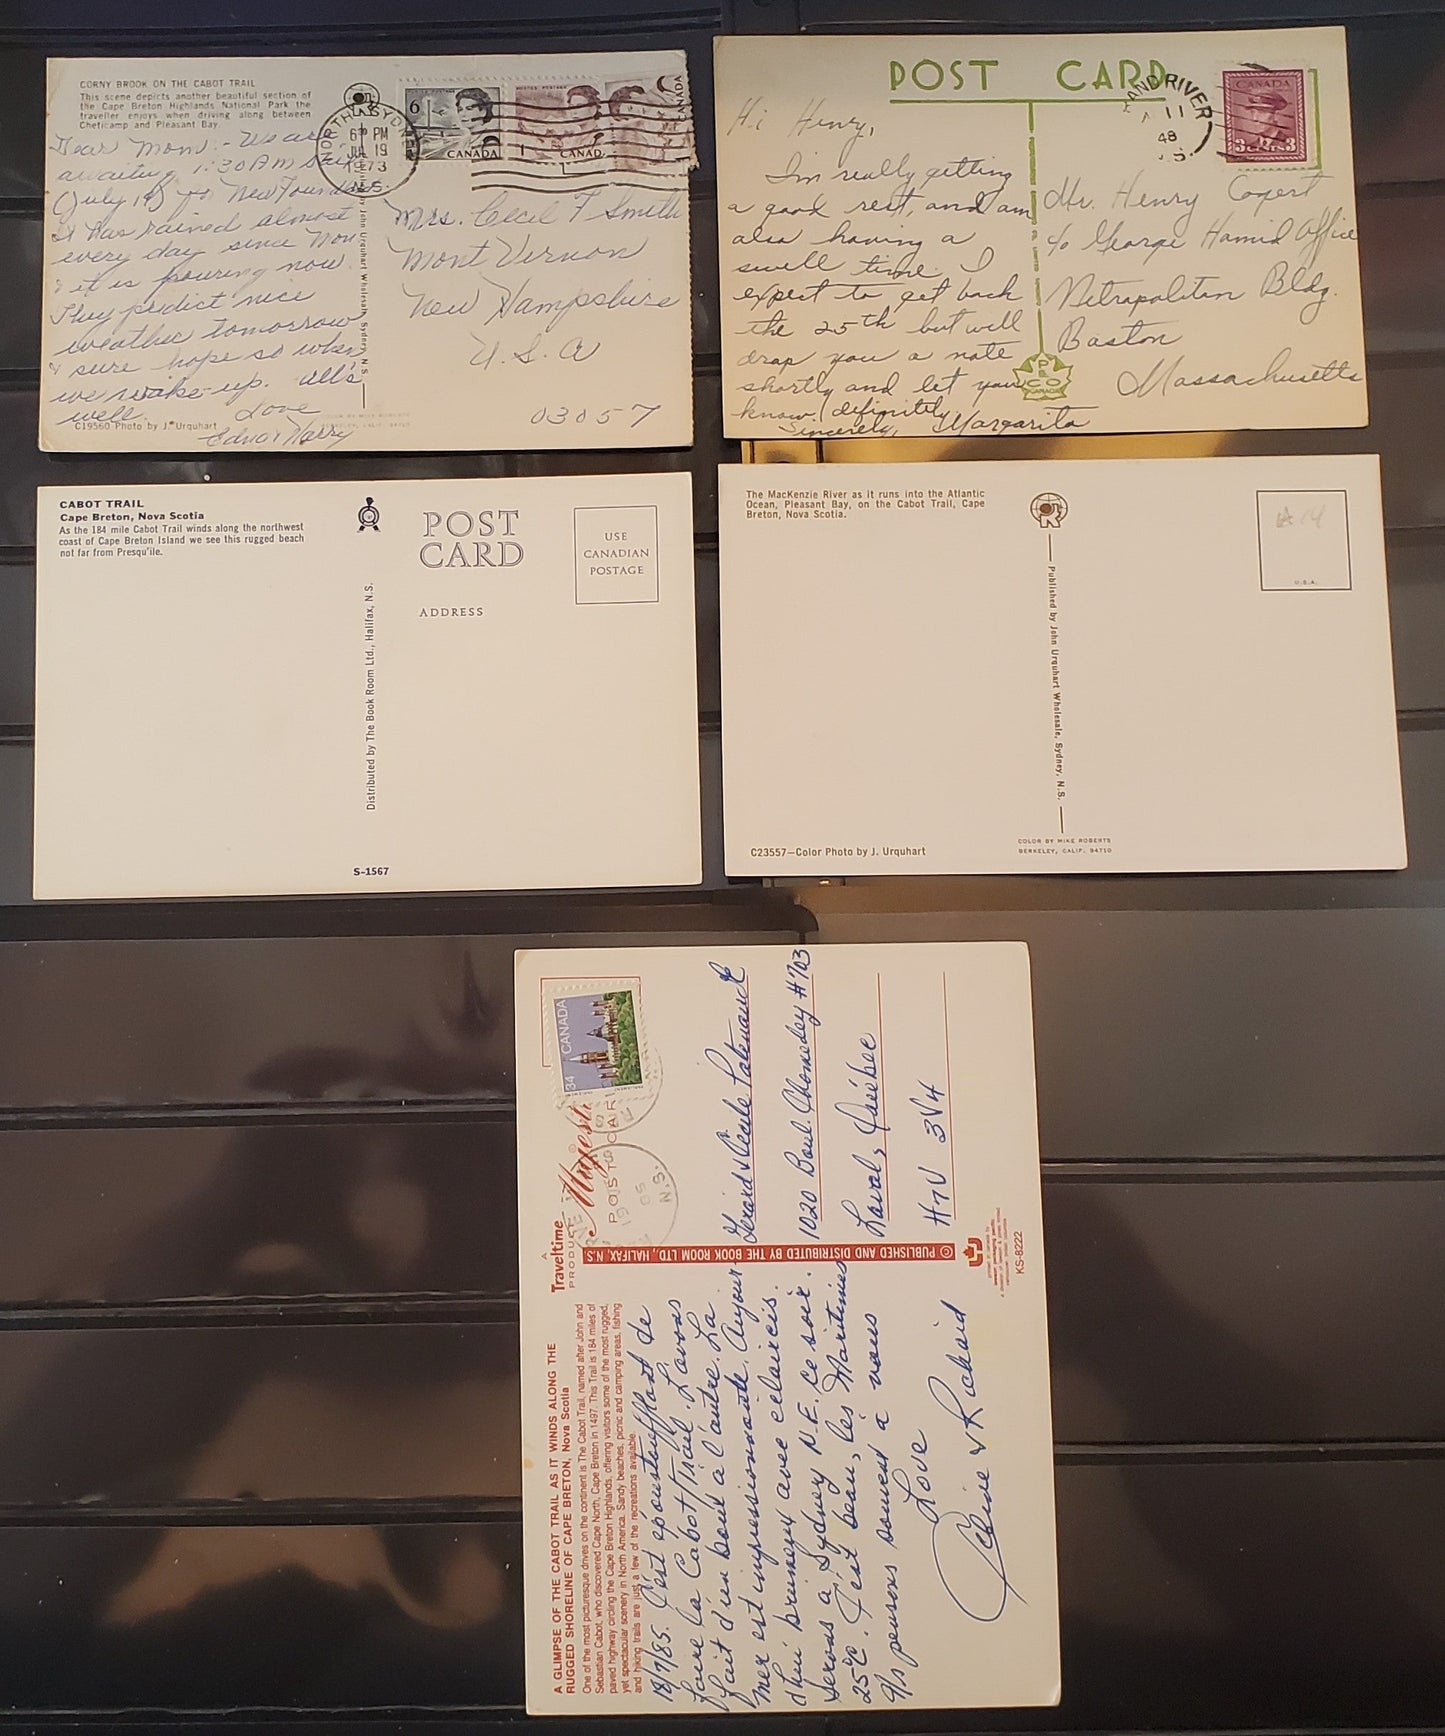 CORNY BROOK ON THE CABOT TRAIL
This scene depicts another beautiful section of
the Cape Breton Highlands National Park the
traveller enjoys when driving along between
Cheticamp and Pleasant Bay.
Dear Mom:- We are
awaiting 1:30 AM
(July 19) for New Found
It has rained almost
every day since Mon
& it is pouring now.
They pedict nice
weather tomorrow
& sure hope so when
we wake-up. All's
well.
Love
Edna & Harry
C19560 Photo by J. Urquhart
John Urquhart Wholesale, Sydney, N.S.
COLOR BY MIKE ROBERTS
BERKELEY, CALIF. 94710
NORTH SYDNEY
6 PM
JUL 19
1973
N.S.
6
CANADA
POSTES POSTAGE
1 CANADA
CANADA
Mrs. Cecil F Smith
Mont Vernon
New Hampshire
U.S.A
03057
POST CARD
Hi Henry,
I'm really getting
a good rest, and am
also having a
swell time. I
expect to get back
the 25th but will
drop you a note
shortly and let you
know definitely
Sincerely, Margarita
P
& CO
CANADA
RAND RIVER
11
48
N.S.
CANADA
3 CENTS 3
Mr. Henry Copert
c/o George Hamid Office
Metropolitan Bldg.
Boston
Massachusetts
CABOT TRAIL
Cape Breton, Nova Scotia
As the 184 mile Cabot Trail winds along the northwest
coast of Cape Breton Island we see this rugged beach
not far from Presqu'ile.
POST
CARD
ADDRESS
USE
CANADIAN
POSTAGE
Distributed by The Book Room Ltd., Halifax, N.S.
S-1567
The MacKenzie River as it runs into the Atlantic
Ocean, Pleasant Bay, on the Cabot Trail, Cape
Breton, Nova Scotia.
U.S.A.
Published by John Urquhart Wholesale, Sydney, N.S.
C23557—Color Photo by J. Urquhart
COLOR BY MIKE ROBERTS
BERKELEY, CALIF. 94710
A GLIMPSE OF THE CABOT TRAIL AS IT WINDS ALONG THE
RUGGED SHORELINE OF CAPE BRETON, Nova Scotia
One of the most picturesque drives on the continent is The Cabot Trail, named after John and
Sebastian Cabot, who discovered Cape North, Cape Breton in 1497. This Trail is 184 miles of
paved highway circling the Cape Breton Highlands, offering visitors some of the most rugged,
yet spectacular scenery in North America. Sandy beaches, picnic and camping areas, fishing
and hiking trails are just a few of the recreations available.
18/7/85. C'est époustouflant de
faire la Cabot Trail. L'avons
fait d'un bout à l'autre. La
mer est impressionnante. Aujour-
d'hui brumeux avec éclaircis.
Serons à Sydney N.E. ce soir.
25°C. C'est beau, les Maritimes
N/s pensons souvent à vous
Love
Céline & Richard
A
Traveltime
PRODUCT
Majestic
POST CARD
34 CANADA
19
85
N.S.
© PUBLISHED AND DISTRIBUTED BY THE BOOK ROOM LTD., HALIFAX, N.S.
Gérard & Cécile Patenaude
1020 Boul. Chomedey #703
Laval, Québec
H7V 3V4
KS-8222